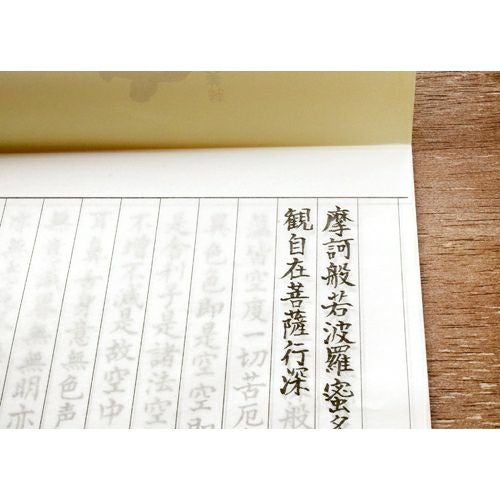 摩訶般若波羅蜜多
観自在菩薩行深般
皆空度一切苦厄
異色色即是空空即
是舎利子是諸法空
不増不減是故空中
耳鼻舌身意無色声
無意識界無無明亦